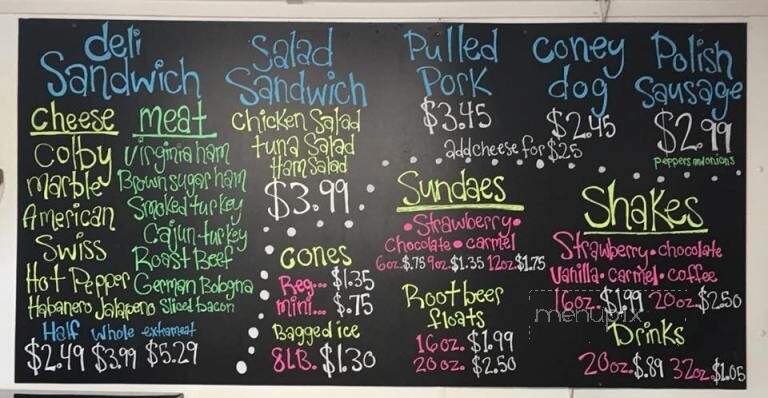 deli
Sandwich
cheese
Colby
marble
American
Swiss
Hot Pepper
Habanero Jalapeno
meat
Virginia ham
Brown sugar ham
Smoked turkey
Cajun turkey
Roast Beef
German Bologna
Sliced bacon
Half whole extra meat
$2.49 $3.99 $5.29
Salad
Sandwich
Chicken Salad
tuna Salad
Ham Salad
$3.99
Cones
Reg... $1.35
mini... $.75
Bagged ice
8LB. $1.30
Pulled
Pork
$3.45
coney
dog
$2.45
add cheese for $.25
Polish
Sausage
$2.99
peppers and onions
Sundaes
•Strawberry•
Chocolate • carmel
6oz. $.75 9oz. $1.35 12oz. $1.75
Root beer
floats
16oz. $1.99
20oz. $2.50
Shakes
Strawberry • chocolate
Vanilla • carmel • coffee
16oz. $1.99 20oz. $2.50
menupix
Drinks
20oz. $.89 32oz. $1.05